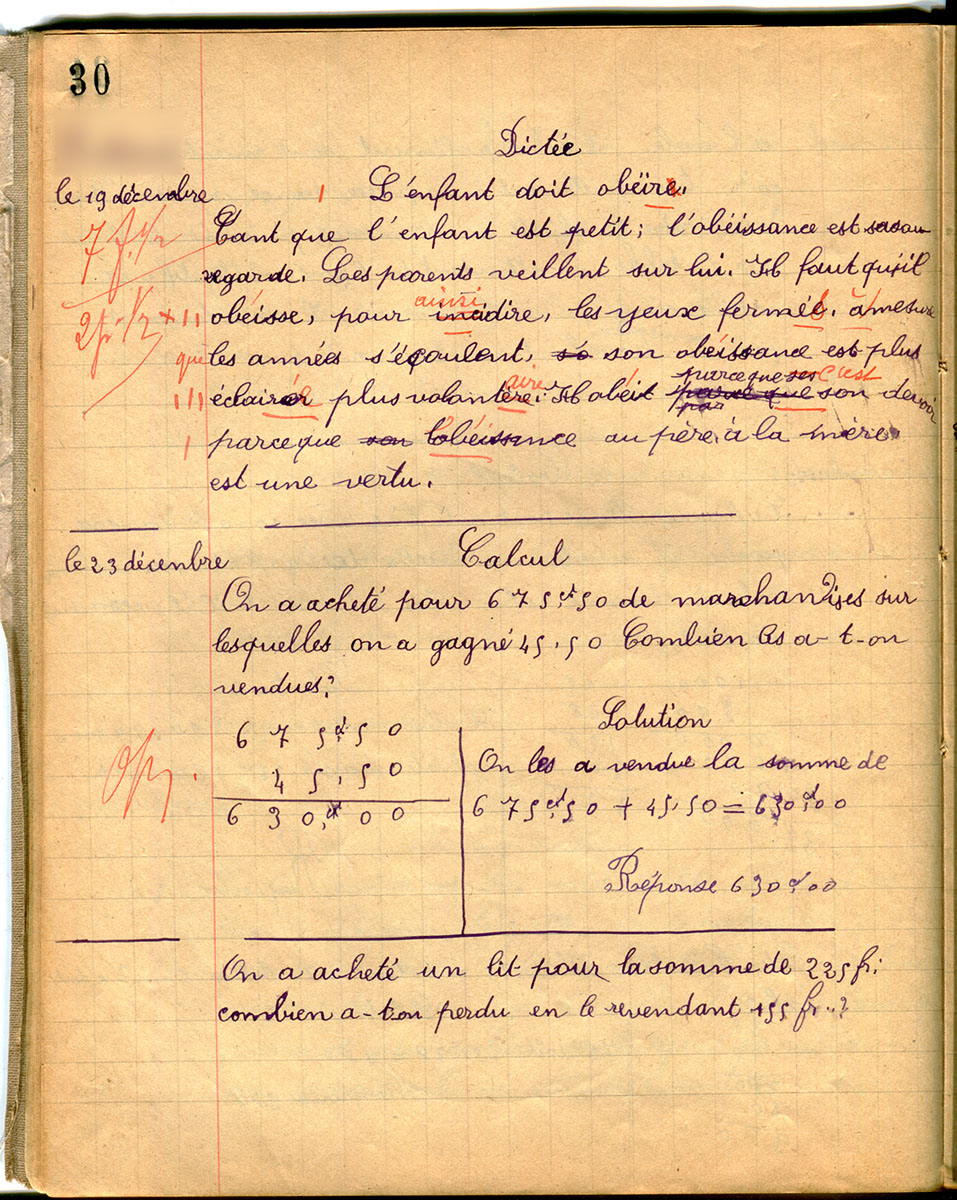 30
Dictée
le 19 décembre
1 L'enfant doit obëire.
7 f. 1/2 Tant que l'enfant est petit; l'obéissance est sa sau
vegarde. Les parents veillent sur lui. Il faut qu'il
ainsi
2 p. 1/2 × 1 1 obéisse, pour dire, les yeux fermée. à mesure
que les années s'écoulent, so son obéissance est plus
aire parceque c'est
1 1 1 éclairée plus volontère. Il obéit parce que son devoir
par
1 parceque son l'obéissence au père, à la mère
est une vertu.
le 23 décenbre Calcul
On a acheté pour 675,50 de marchandises sur
lesquelles on a gagné 45,50 Combien les a-t-on
vendues?
675,50
45,50
630,00
Solution
On les a vendue la somme de
675,50 + 45,50 = 630,00
Réponse 630,00
On a acheté un lit pour la somme de 225 fr;
combien a-t-on perdu en le revendant 155 fr..?